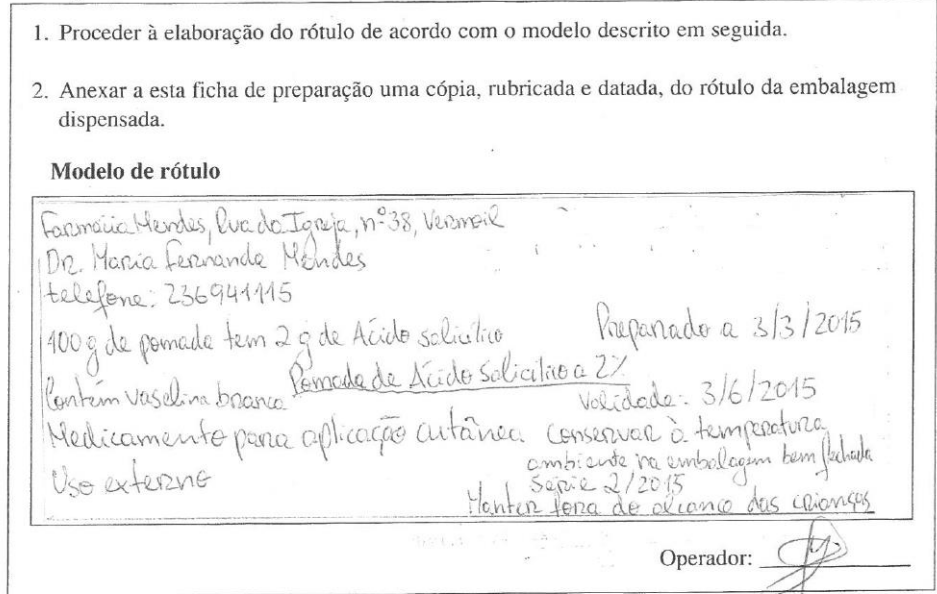 1. Proceder à elaboração do rótulo de acordo com o modelo descrito em seguida.
2. Anexar a esta ficha de preparação uma cópia, rubricada e datada, do rótulo da embalagem
dispensada.
Modelo de rótulo
Farmácia Mendes, Rua da Igreja, nº38, Vermoil
Dr. Maria Fernanda Mendes
telefone: 236941115
100 g de pomada tem 2 g de Ácido salicílico Preparado a 3/3/2015
Pomada de Ácido Salicílico a 2%
Contém vaselina branca Validade: 3/6/2015
Medicamento para aplicação cutânea Conservar à temperatura
ambiente na embalagem bem fechada
Uso externo Série 2/2015
Manter fora do alcance das crianças
Operador: